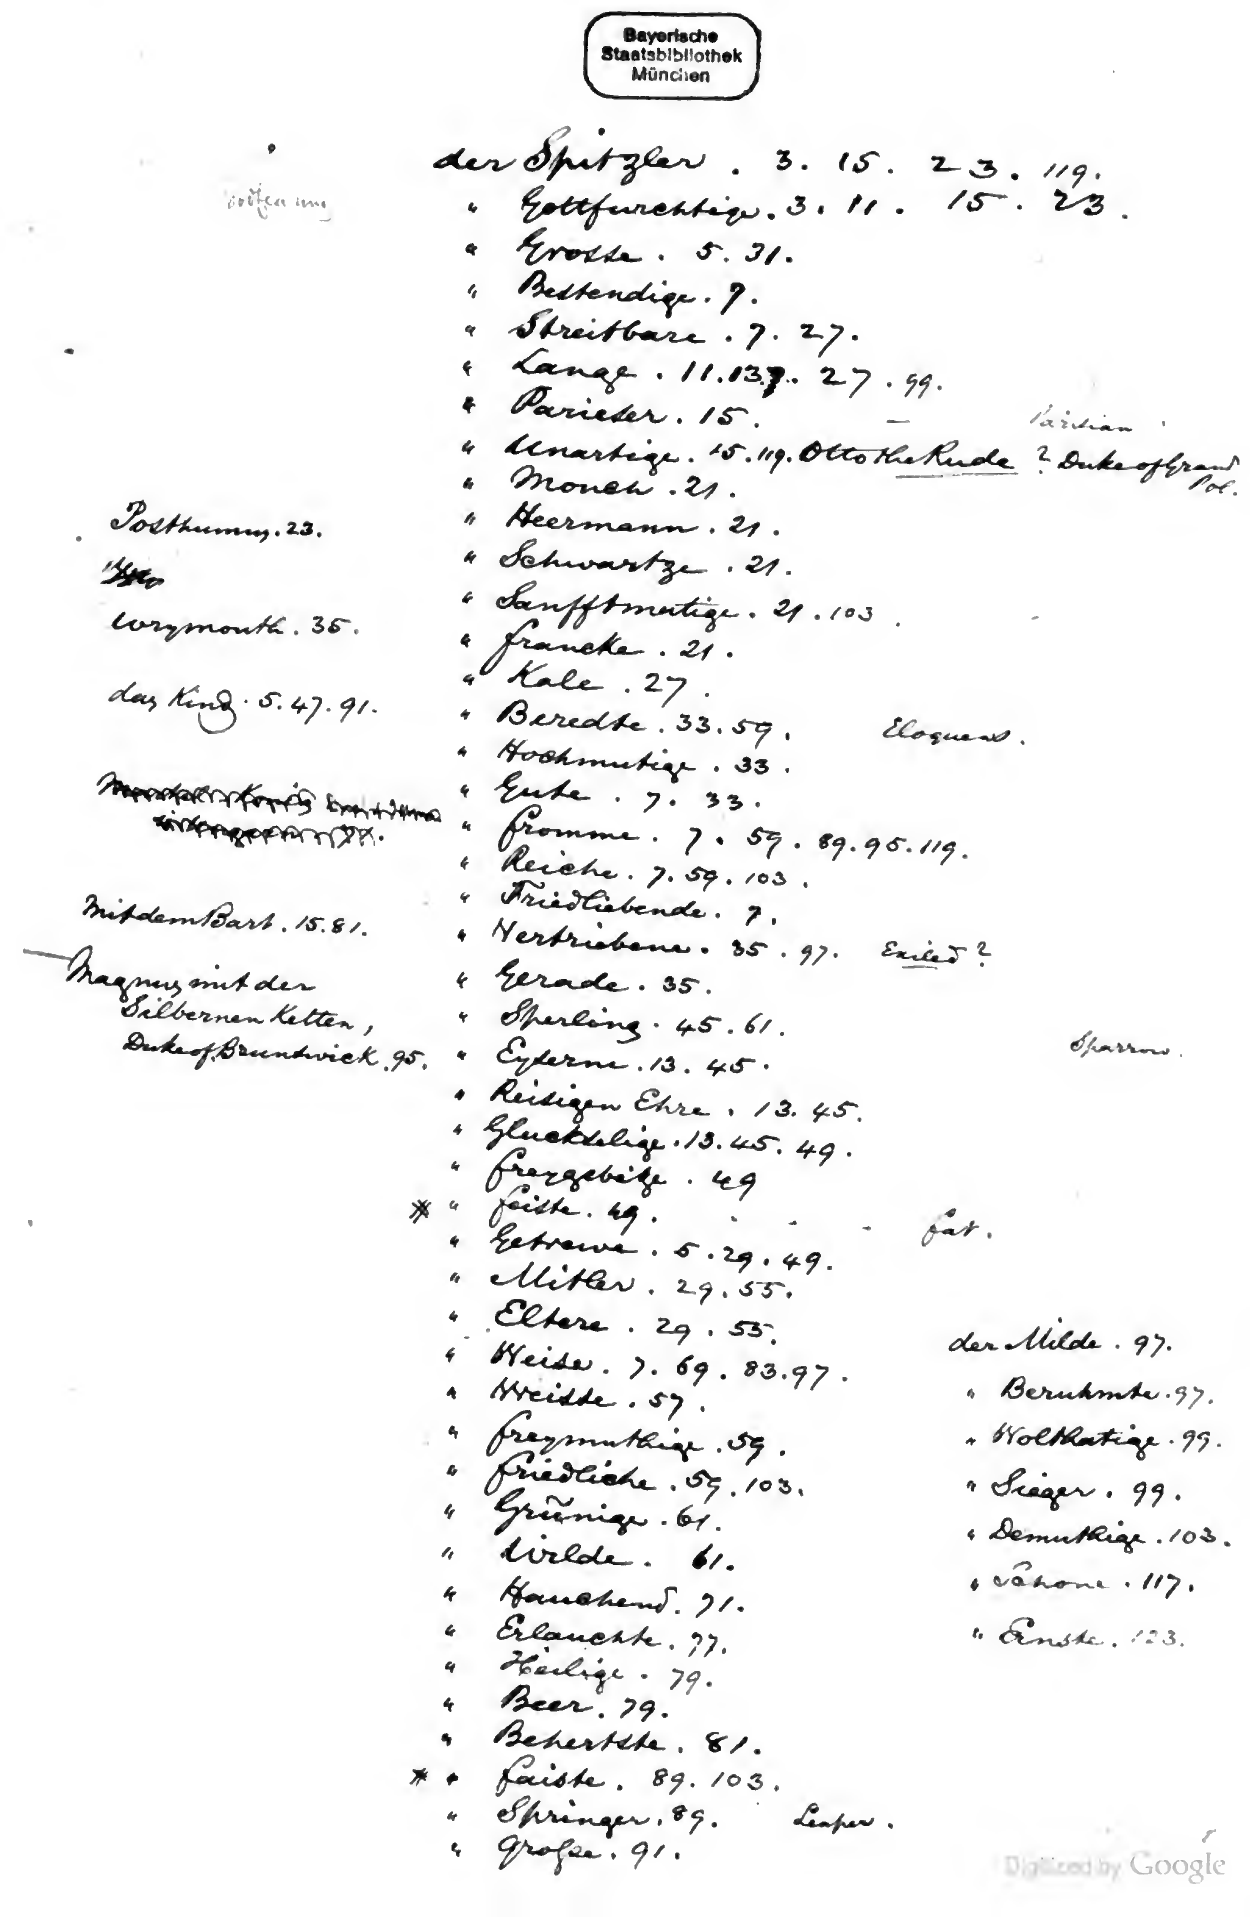 Bayerische
Staatsbibliothek
München
der Spitzler . 3. 15. 23. 119.
" Gottfurchtige. 3. 11. 15. 23.
" Grosse . 5. 31.
" Bestendige. 7.
" Streitbare . 7. 27.
" Lange . 11. 13. 27. 99.
" Parieser. 15. – Parisian
" Unartige. 15. 119. Otto the Rude ? Duke of Grand Pol.
" Monch. 21.
" Heermann. 21.
" Schwartze . 21.
" Sanfftmutige. 21. 103.
" francke . 21.
" Kale . 27.
" Beredte. 33. 59. Eloquens.
" Hochmutige . 33.
" Gute . 7. 33.
" fromme. 7. 59. 89. 95. 119.
" Reiche. 7. 59. 103.
" Friedliebende. 7.
" Vertriebene. 35. 97. Exiled ?
" Gerade. 35.
" Sperling. 45. 61. Sparrow.
" Eyserne. 13. 45.
" Reisigen Ehre. 13. 45.
" Gluckselige. 13. 45. 49.
" freygebige. 49
* " feiste. 49. fat.
" Getrewe. 5. 29. 49.
" Mitler. 29. 55.
" Eltere . 29. 55.
" Weise. 7. 69. 83. 97.
" Weisse. 57.
" freymuthige. 59.
" friedliche. 59. 103.
" Grünige. 61.
" Wilde. 61.
" Hauchend. 71.
" Erlauchte. 77.
" Heilige. 79.
" Beer. 79.
" Behertste. 81.
* " faiste. 89. 103.
" Springer. 89. Leaper.
" Große. 91.
Posthumus. 23.
Wrymouth. 35.
das Kind. 5. 47. 91.
Mit dem Bart. 15. 81.
Magnus mit der
Silbernen Ketten,
Duke of Brunswick. 95.
der Milde. 97.
" Beruhmte. 97.
" Wolthatige. 99.
" Sieger. 99.
" Demuthige. 103.
" Schone. 117.
" Ernste. 123.
Digitized by Google